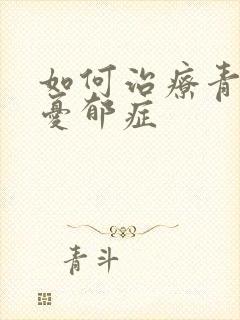 如何治療青
憂郁症
青斗